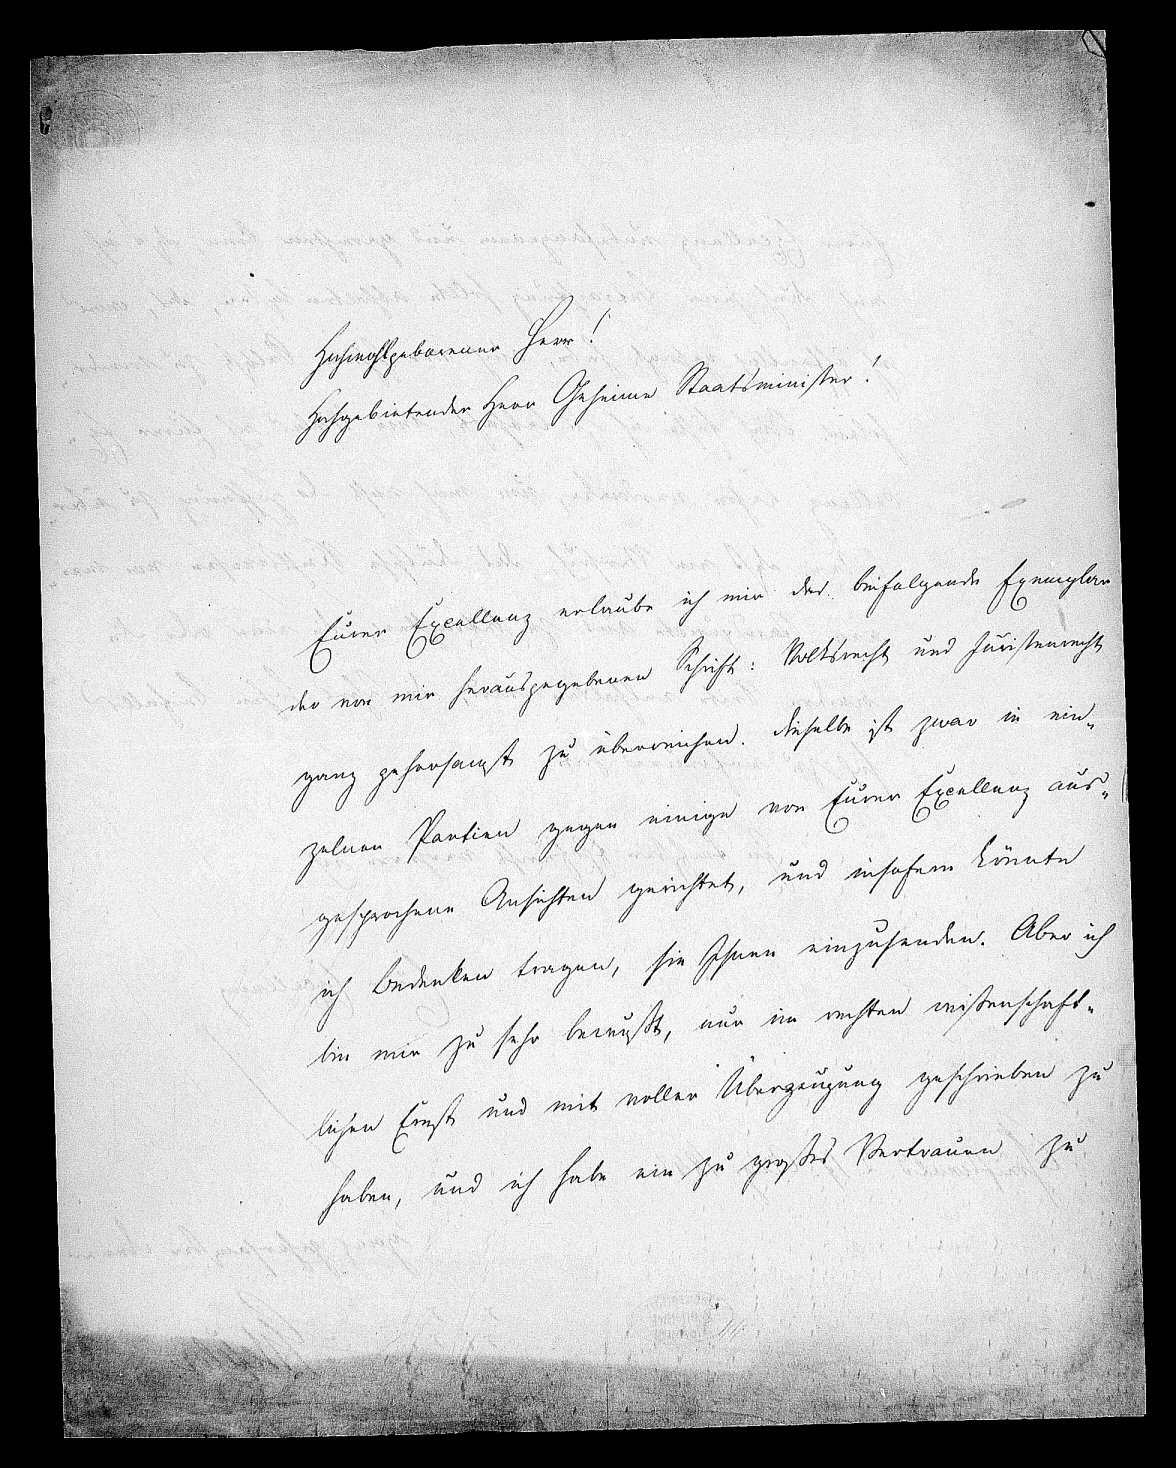 Hochwohlgeborener Herr!
Hochgebietender Herr Geheime Staatsminister!
Eurer Excellenz erlaube ich mir das beifolgende Exemplar
der von mir herausgegebenen Schrift: Volksrecht und Juristenrecht
ganz gehorsamst zu überreichen. Dieselbe ist zwar in ein-
zelnen Partien gegen einige von Eurer Excellenz aus-
gesprochene Ansichten gerichtet, und insofern könnte
ich Bedenken tragen, sie Ihnen einzusenden. Aber ich
bin mir zu sehr bewußt, nur im rechten wißenschaft-
lichen Ernst und mit voller Überzeugung geschrieben zu
haben, und ich habe ein zu großes Vertrauen zu